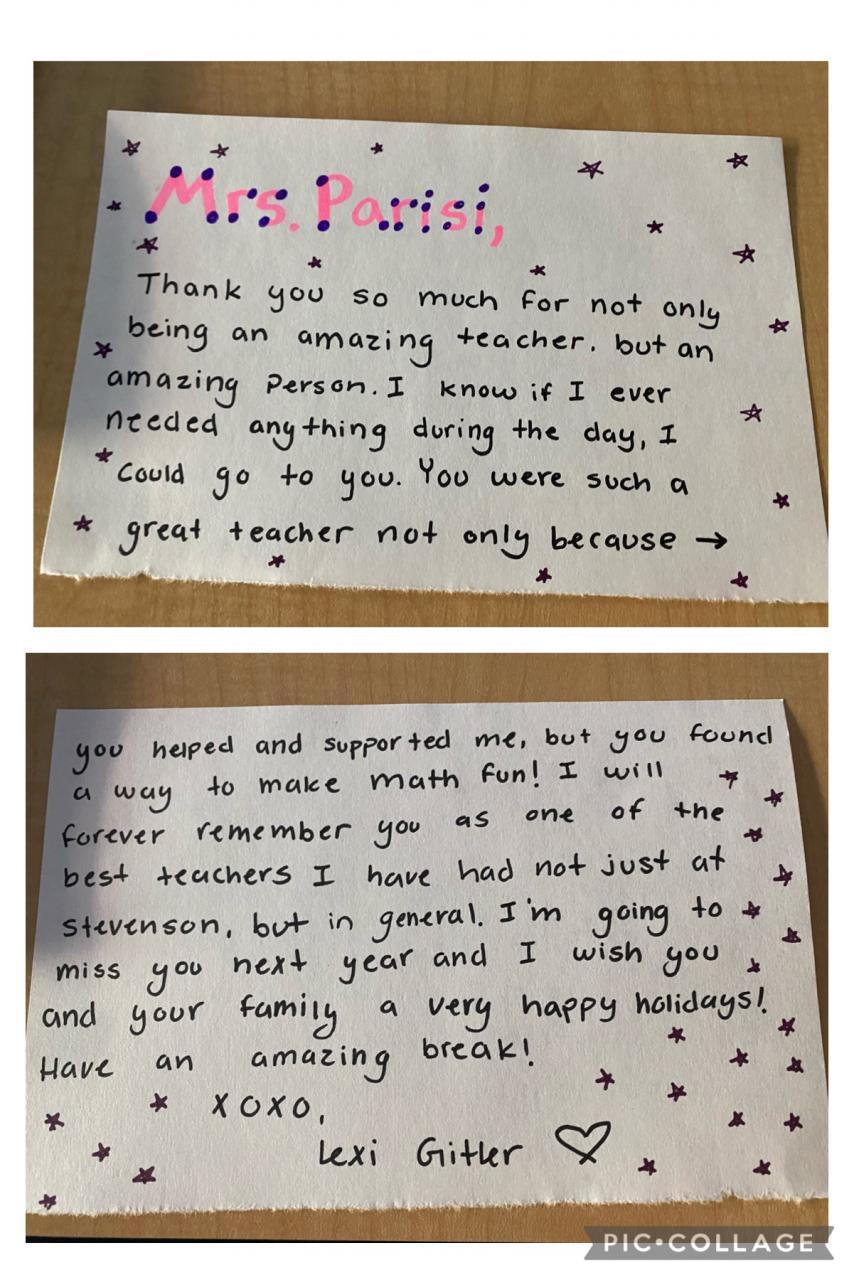 Mrs. Parisi,
Thank you so much for not only
being an amazing teacher, but an
amazing person. I know if I ever
needed anything during the day, I
could go to you. You were such a
great teacher not only because →
you helped and supported me, but you found
a way to make math fun! I will
forever remember you as one of the
best teachers I have had not just at
stevenson, but in general. I'm going to
miss you next year and I wish you
and your family a very happy holidays!
Have an amazing break!
xoxo,
Lexi Gitler
PIC•COLLAGE